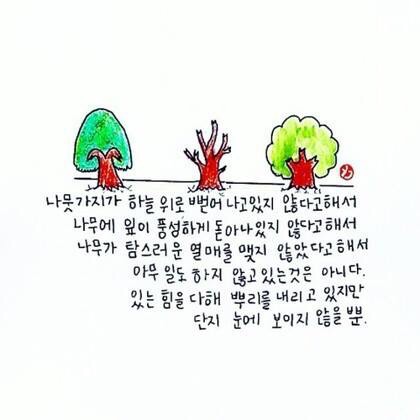 나뭇가지가 하늘 위로 뻗어 나고있지 않다고해서
나무에 잎이 풍성하게 돋아나있지 않다고해서
나무가 탐스러운 열매를 맺지 않았다고해서
아무 일도 하지 않고 있는것은 아니다.
있는 힘을 다해 뿌리를 내리고 있지만
단지 눈에 보이지 않을 뿐.